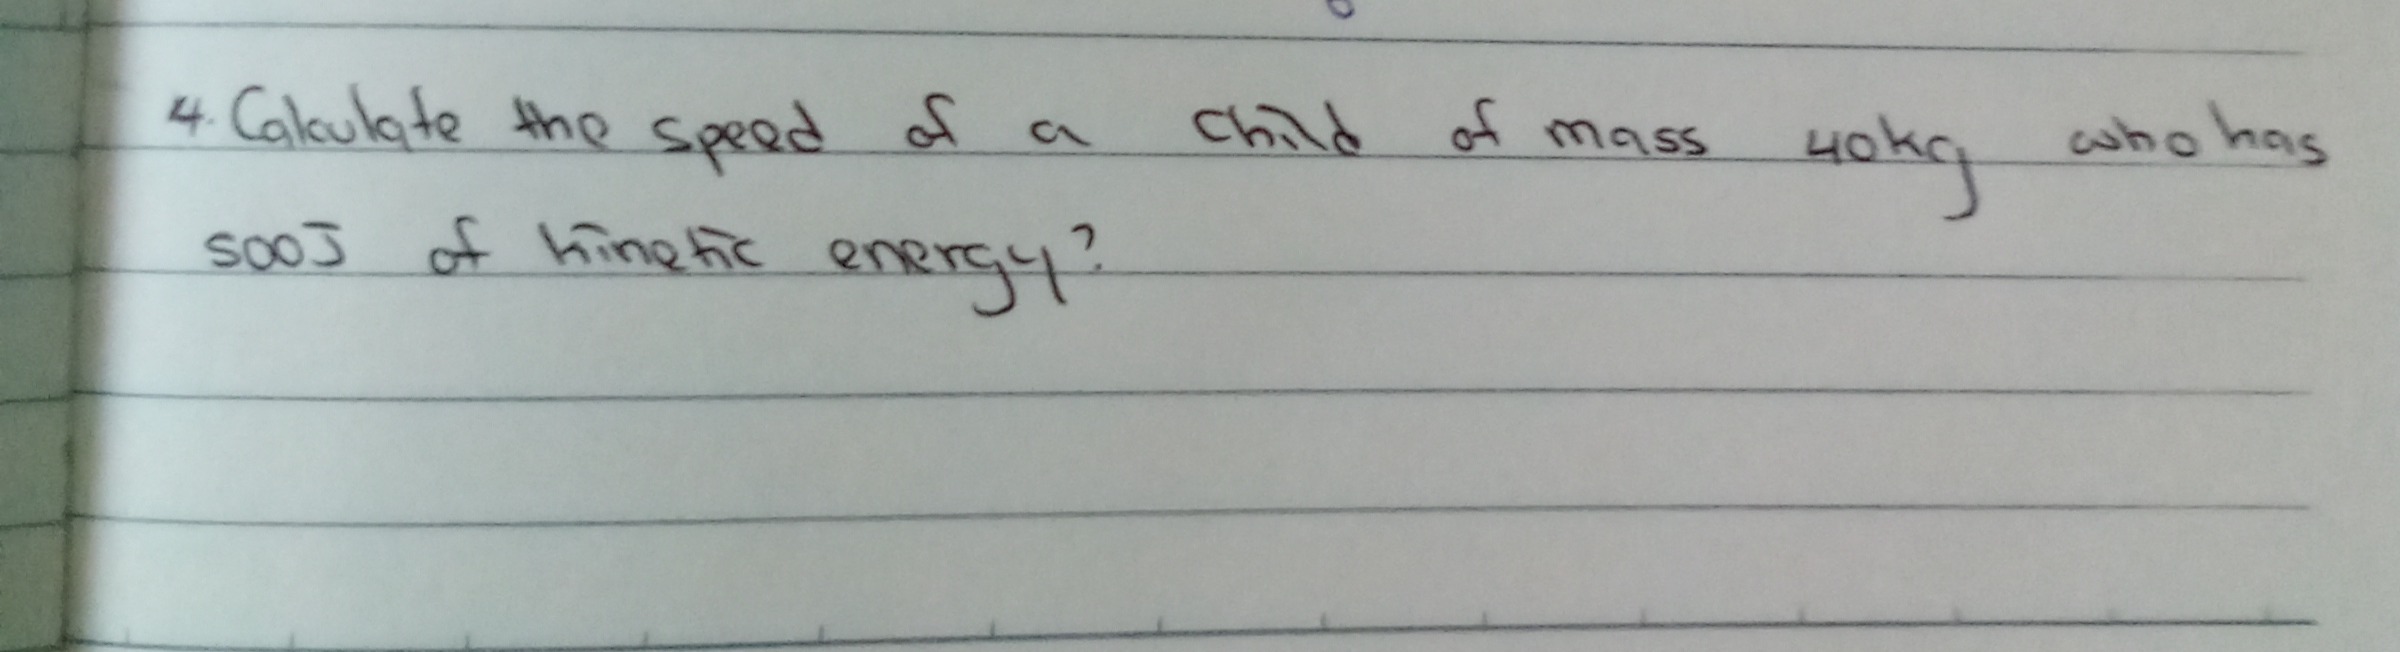 4. Calculate the speed of a child of mass 40kg who has
500J of kinetic energy?